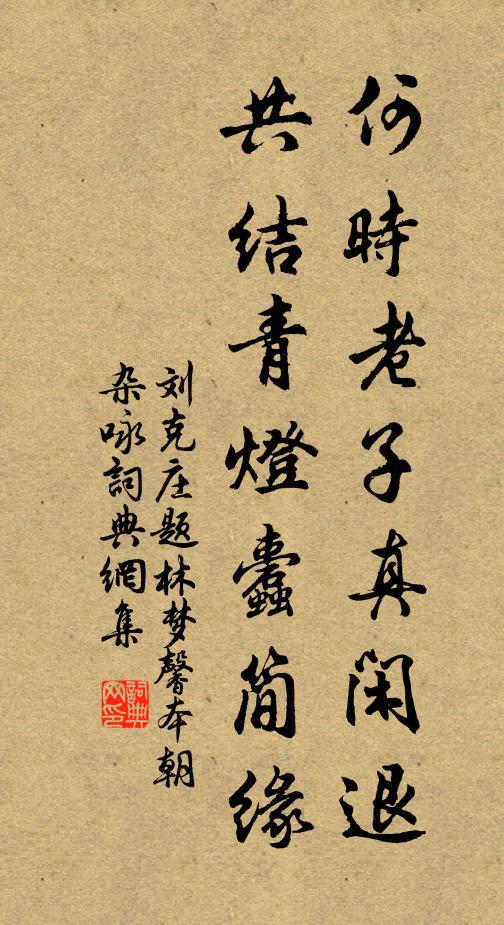 何時老子真閑退
共結青燈蠹簡緣
刘克庄题林梦馨本朝
杂咏詞典網集
詞典网印